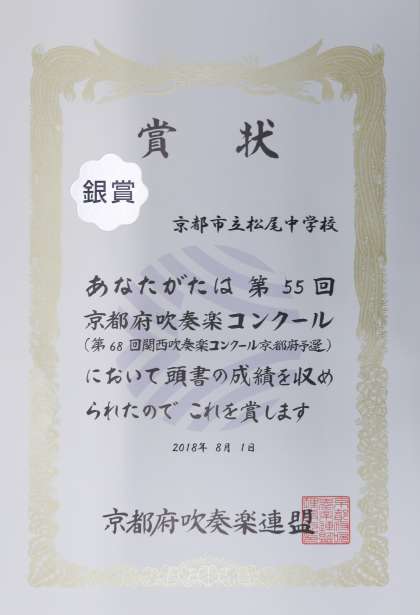 賞状
銀賞
京都市立松尾中学校
あなたがたは 第 55 回
京都府吹奏楽コンクール
(第 68 回関西吹奏楽コンクール京都府予選)
において頭書の成績を収め
られたので これを賞します
2018年 8月 1日
京都府吹奏楽連盟